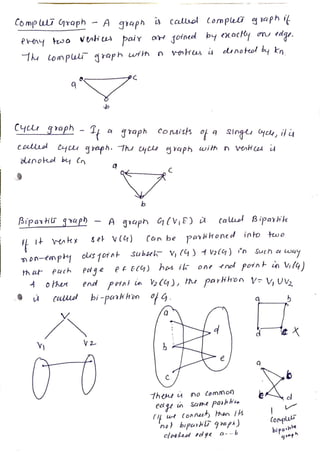 Complete Graph - A graph is called complete graph if
every two vertices pair are joined by exactly one edge.
The complete graph with n vertices is denoted by Kn
a
c
b
Cycle graph - If a graph consists of a single cycle, it is
called cycle graph. The cycle graph with n vertices is
denoted by Cn
a
c
b
Bipartite graph - A graph G(V,E) is called Bipartite
if it vertex set V(G) can be partitioned into two
non-empty disjoint subset V1(G) & V2(G) in such a way
that each edge e E E(G) has its one end point in V1(G)
& other end point in V2(G), the partition V = V1 U V2
is called bi-partition of G.
V
V1
V2
a
b
c
d
e
a
b
d
c
X
There is no common
edge in same partition
(if we connect, then its
not bipartite graph)
a--b
a
b
c
d
complete
bipartite
graph